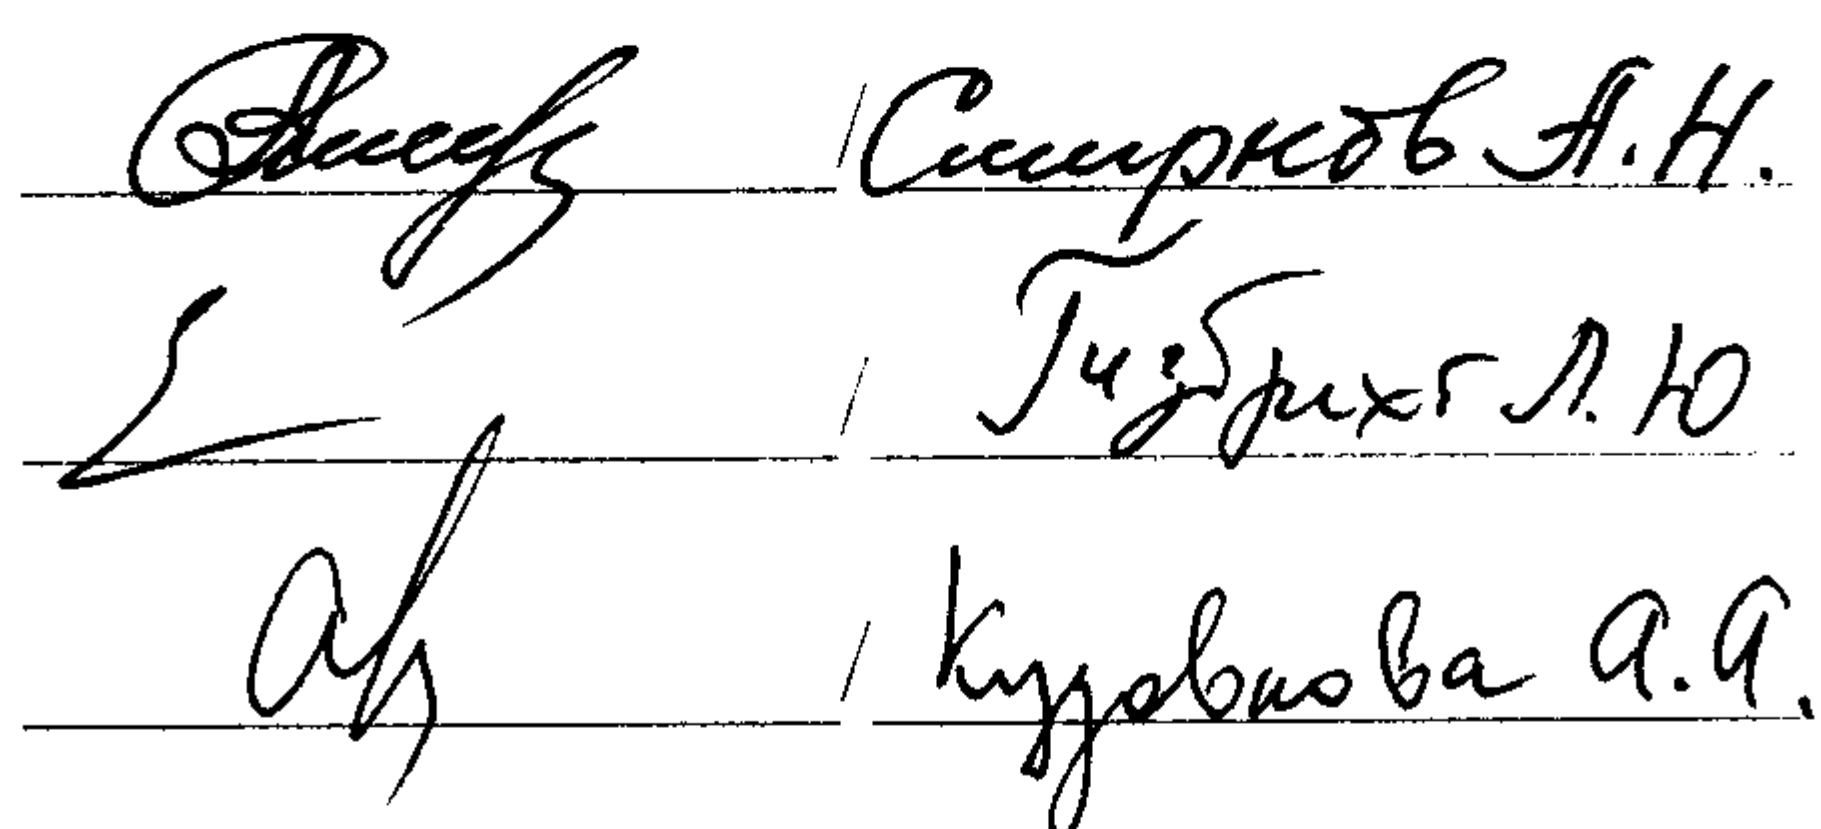 / Смирнов А.Н.
/ Гизбрихт Л.Ю
/ Кузовкова А.А.